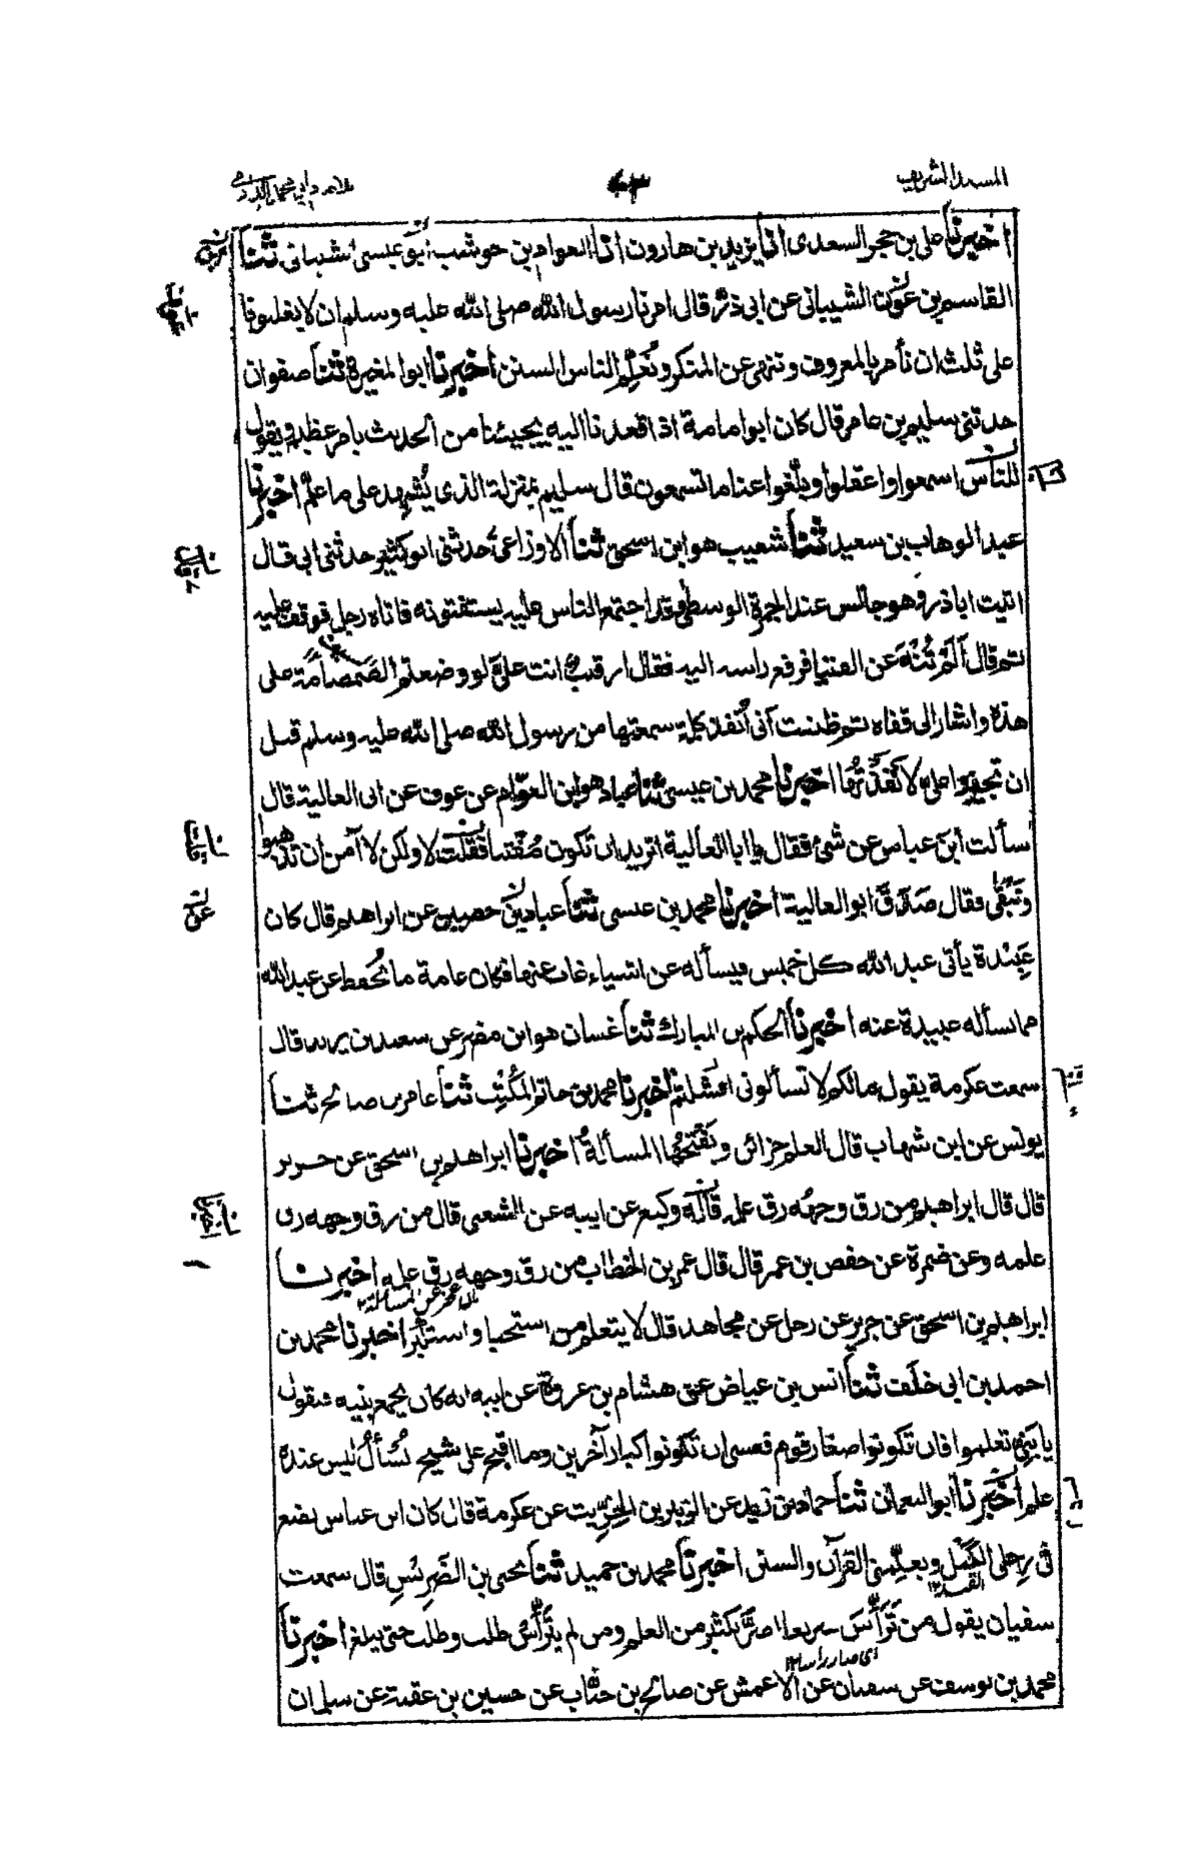 المسند الشريف
٧٣
اخبرنا علي بن حجر السعدى انا يزيد بن هارون انا العوام بن حوشب ابو عيسى الشيبانى ثنا
القاسم بن عوف الشيبانى عن ابى ذر قال امرنا رسول الله صلى الله عليه وسلم ان لا يغلبونا
على ثلث ان نأمر بالمعروف وننهى عن المنكر ونعلم الناس السنن اخبرنا ابوا لمغيرة ثنا صفوان
حدثنى سليم بن عامر قال كان ابوا مامة اذا قعدنا اليه يجيئنا من الحديث بامر عظيم ويقول
للناس اسمعوا واعقلوا وبلغوا عنا ما تسمعون قال سليم بمنزلة الذى يشهد على ما علم اخبرنا
عبد الوهاب بن سعيد ثنا شعيب هو ابن اسحق ثنا الاوزاعى حدثنى ابو كثير حدثنى ابى قال
اتيت اباذر وهو جالس عند الجمرة الوسطى وقد اجتمع الناس عليه يستفتونه فاتاه رجل فوقف عليه
ثم قال ألم تنه عن الفتيا فرفع راسه اليه فقال ارقيب انت علي لو وضعتم الصمصامة على
هذه واشار الى قفاه ثم ظننت أنى أنفذ كلمة سمعتها من رسول الله صلى الله عليه وسلم قبل
ان تجيزوا علي لا نفذتها اخبرنا محمد بن عيسى ثنا عباد هو ابن العوام عن عوف عن ابى العالية قال
سألت ابن عباس عن شئ فقال يا ابا العالية اتريد ان تكون مفتيا فقلت لا ولكن لا آمن ان تذهبوا
وتبقى فقال صدق ابو العالية اخبرنا محمد بن عيسى ثنا عباد بن حصين عن ابراهيم قال كان
عبيدة يأتى عبد الله كل خميس فيسأله عن اشياء غاب عنها فكان عامة ما يحفظ عن عبد الله
مما يسأله عبيدة عنه اخبرنا الحكم بن المبارك ثنا غسان هو ابن مضر عن سعيد بن يزيد قال
سمعت عكرمة يقول مالكم لا تسألونى افشلتم اخبرنا محمد بن حاتم المكتب ثنا عامر بن صالح ثنا
يونس عن ابن شهاب قال العلم خزائن وتفتحها المسألة اخبرنا ابراهيم بن اسحق عن جرير
قال قال ابراهيم من رق وجهه رق علمه قاله وكيع عن ابيه عن الشعبى قال من رق وجهه رق
علمه وعن ضمرة عن حفص بن عمر قال قال عمر بن الخطاب من رق وجهه رق علمه اخبرنا
ابراهيم بن اسحق عن جرير عن رجل عن مجاهد قال لا يتعلم من استحيا واستكبر اخبرنا محمد بن
احمد بن ابى خلف ثنا انس بن عياض عن هشام بن عروة عن ابيه انه كان يجمع بنيه فيقول
يا بنى تعلموا فان تكونوا صغار قوم فعسى ان تكونوا كبار آخرين وما اقبح على شيخ يسأل ليس عنده
علم اخبرنا ابو النعمان ثنا حماد بن زيد عن الزبير بن الخريت عن عكرمة قال كان ابن عباس يضع
فى رجلى الكبل ويعلمنى القرآن والسنن اخبرنا محمد بن حميد ثنا يحيى بن الضريس قال سمعت
القيد ١٢
سفيان يقول من ترأس سريعا اضر بكثير من العلم ومن لم يترأس طلب وطلب حتى يبلغ اخبرنا
اى صار رأسا ١٢
محمد بن يوسف عن سفيان عن الاعمش عن صالح بن خباب عن حصين بن عقبة عن سلمان